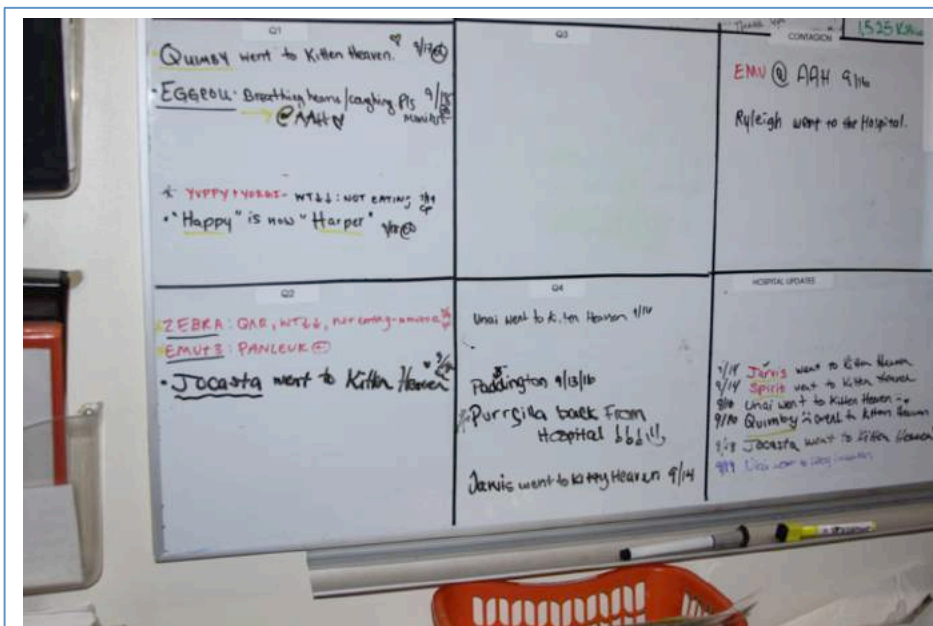 Q1
QUIMBY went to Kitten Heaven. ♡ 9/17
• EGGROLL - Breathing heavy/coughing Pls 9/18
monitor
→ @ AAH
* YUPPY + YORGI - WT↓↓: NOT EATING
• "Happy" is now "Harper"
Q3
CONTAGION
1,525 K
EMU @ AAH 9/16
Ryleigh went to the Hospital.
Q2
ZEBRA: QAR, WT↓↓, not eating
EMU+3: PANLEUK
• Jocasta went to Kitten Heaven
Q4
Unai went to Kitten Heaven 9/16
Paddington 9/13/16
Purrsilla back From
Hospital
Jarvis went to Kitty Heaven 9/14
HOSPITAL UPDATES
9/14 Jarvis went to Kitten Heaven
9/14 Spirit went to Kitten Heaven
Unai went to Kitten Heaven
Quimby went to Kitten Heaven
Jocasta went to Kitten Heaven